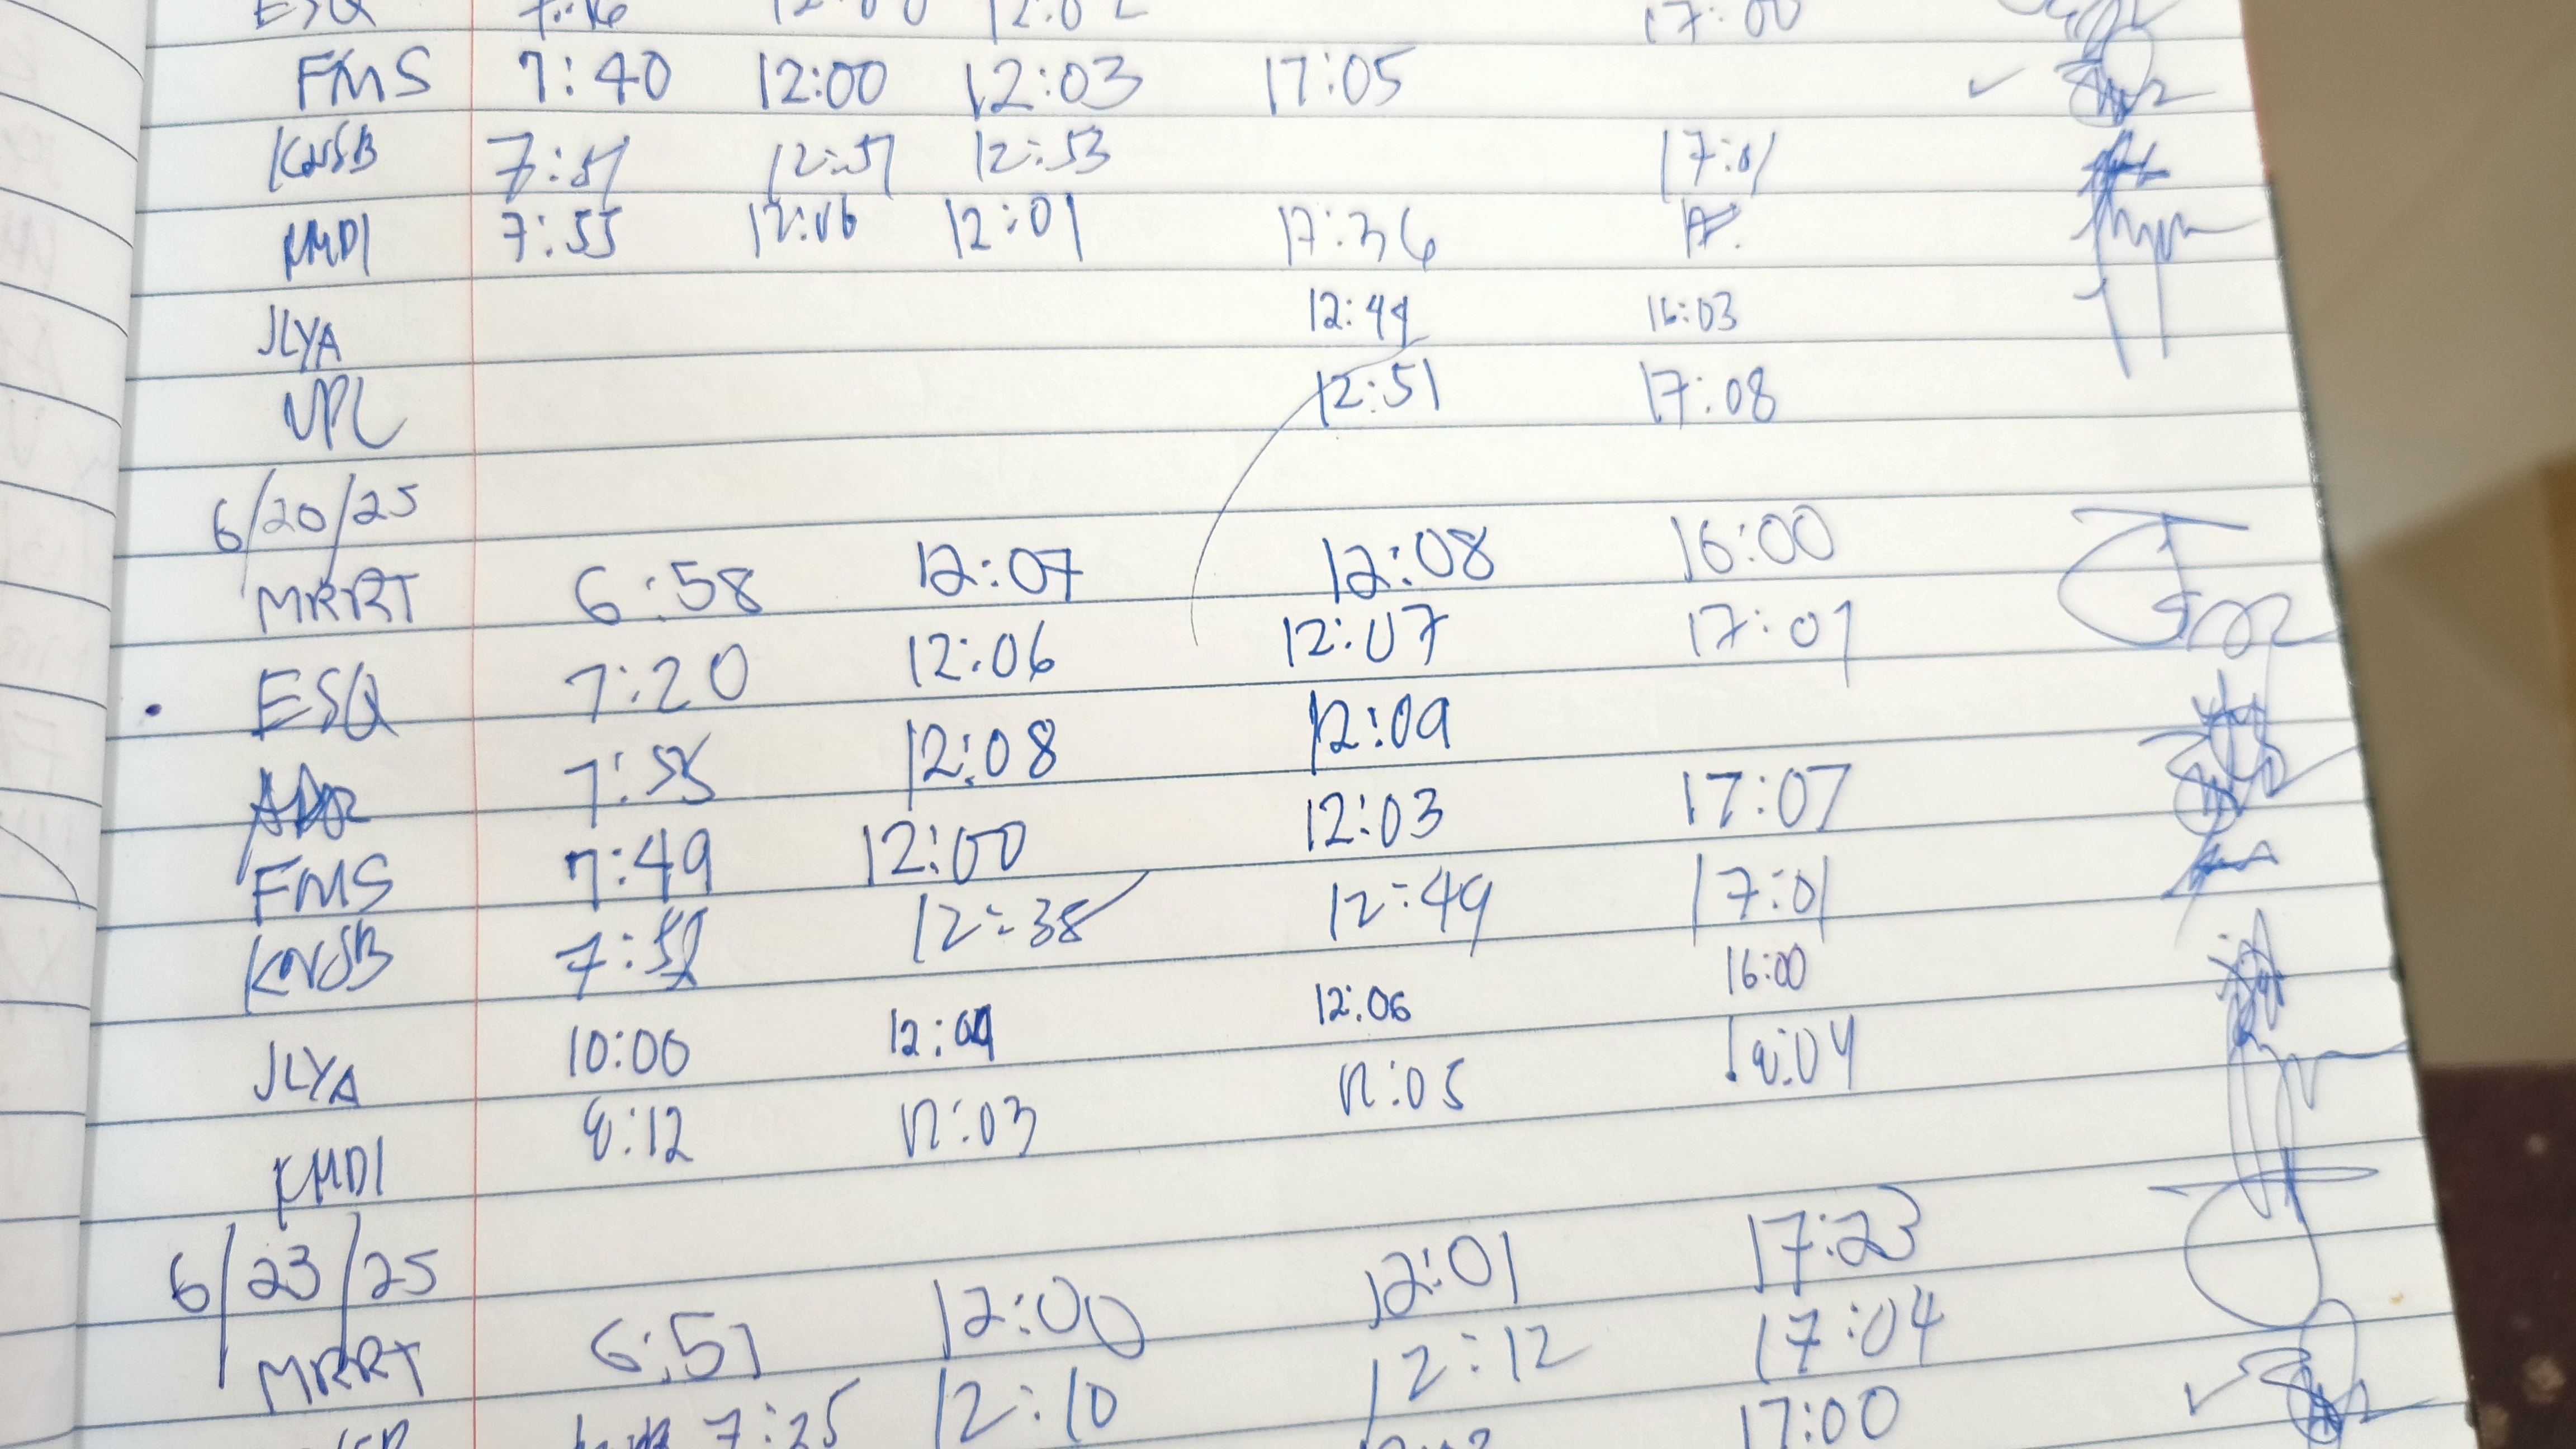 ESQ 7:16 12:00 12:02 17:00
FMS 7:40 12:00 12:03 17:05
KNSB 7:51 12:51 12:53 17:01
KMDI 7:55 12:06 12:01 17:36 17.
JLYA 12:44 16:03
VPL 12:51 17:08
6/20/25
MRRT 6:58 12:07 12:08 16:00
ESQ 7:20 12:06 12:07 17:01
7:55 12:08 12:09
FMS 7:49 12:00 12:03 17:07
KNSB 12:38 12:49 17:01
JLYA 10:00 12:04 12:06 16:00
KMDI 8:12 12:03 12:05 18:04
6/23/25
MRRT 6:51 12:00 12:01 17:23
7:25 12:10 12:12 17:04
17:00